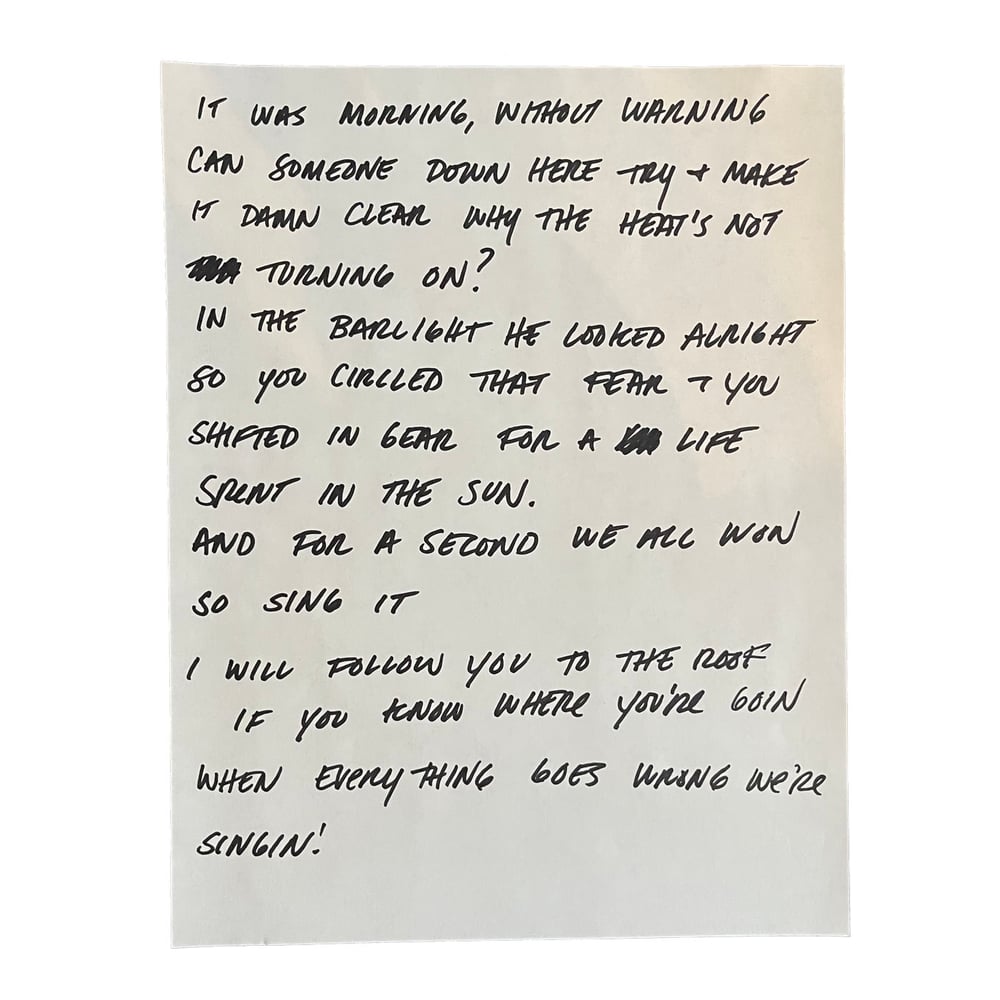 IT WAS MORNING, WITHOUT WARNING
CAN SOMEONE DOWN HERE TRY + MAKE
IT DAMN CLEAR WHY THE HEAT'S NOT
TURNING ON?
IN THE BARLIGHT HE LOOKED ALRIGHT
SO YOU CIRCLED THAT FEAR + YOU
SHIFTED IN GEAR FOR A LIFE
SPENT IN THE SUN.
AND FOR A SECOND WE ALL WON
SO SING IT
I WILL FOLLOW YOU TO THE ROOF
IF YOU KNOW WHERE YOU'RE GOIN
WHEN EVERYTHING GOES WRONG WE'RE
SINGIN!